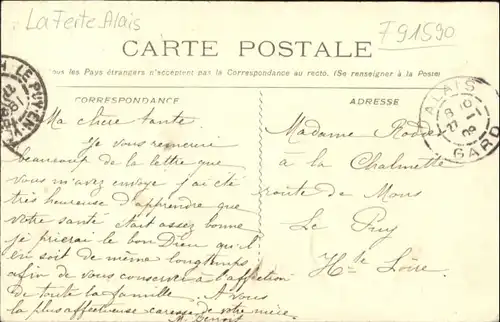 La Ferte Alais
F91590
CARTE POSTALE
Tous les Pays étrangers n'acceptent pas la Correspondance au recto. (Se renseigner à la Poste)
CORRESPONDANCE
Ma chère tante.
Je vous remercie
beaucoup de la lettre que
vous m'avez envoyé j'ai été
très heureuse d'apprendre que
votre santé était assez bonne
je prierai le bon Dieu qu'il
en soit de même longtemps
afin de vous conserver à l'affection
de toute la famille. A vous
la plus affectueuse caresse de votre nièce
ADRESSE
Madame
à la Chalmette
route de Mons
Le Puy
Hte Loire
LE PUY EN
ALAIS
GARD